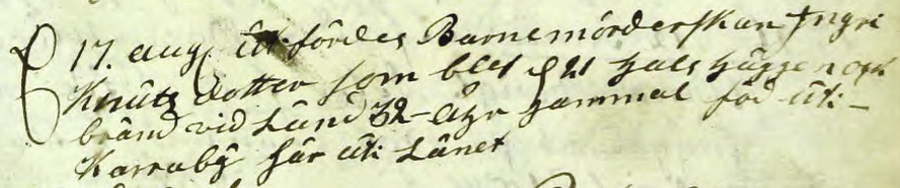 17. aug. Utfördes Barnemörderskan Ingri
Knutz dotter som blef d 21 halshüggen ock
bränd vid Lünd 32-åhr gammal föd üti-
Karraby här üti Länet